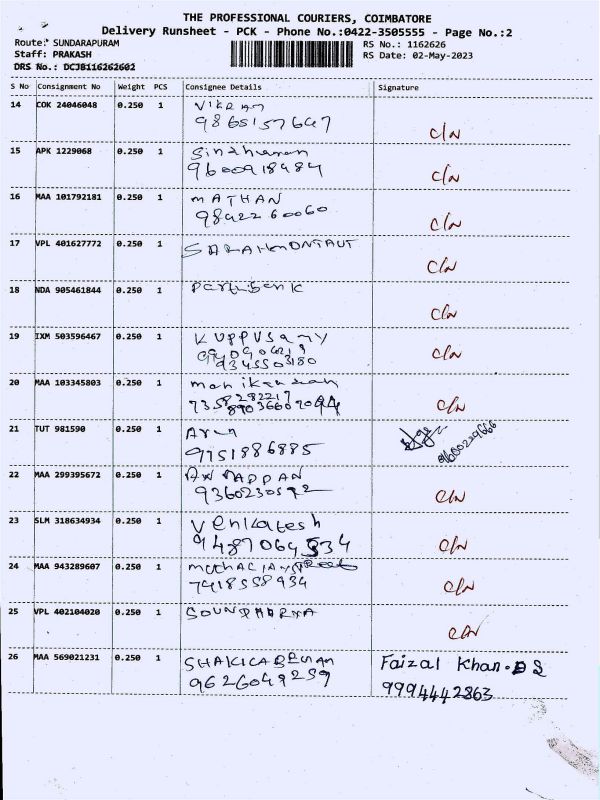 THE PROFESSIONAL COURIERS, COIMBATORE
Delivery Runsheet - PCK - Phone No.:0422-3505555 - Page No.:2
Route: SUNDARAPURAM
RS No.: 1162626
Staff: PRAKASH
RS Date: 02-May-2023
DRS No.: DCJB116262602
S No Consignment No Weight PCS Consignee Details Signature
14 COK 24046048 0.250 1 VIKRAM
9865157647
C/N
15 APK 1229068 0.250 1
9600918484
C/N
16 MAA 101792181 0.250 1 MATHAN
9842260060
C/N
17 VPL 401627772 0.250 1
C/N
18 NDA 905461844 0.250 1
C/N
19 IXM 503596467 0.250 1 KUPPUSAMY
9345503180
C/N
20 MAA 103345803 0.250 1 manikandan
C/N
21 TUT 981590 0.250 1 Arun
9751886885
9600229666
22 MAA 299395672 0.250 1
9360230592
C/N
23 SLM 318634934 0.250 1 Venkatesh
C/N
24 MAA 943289607 0.250 1
7418558934
C/N
25 VPL 402104020 0.250 1
C/N
26 MAA 569021231 0.250 1
9626049259
Faizal Khan
9994442863